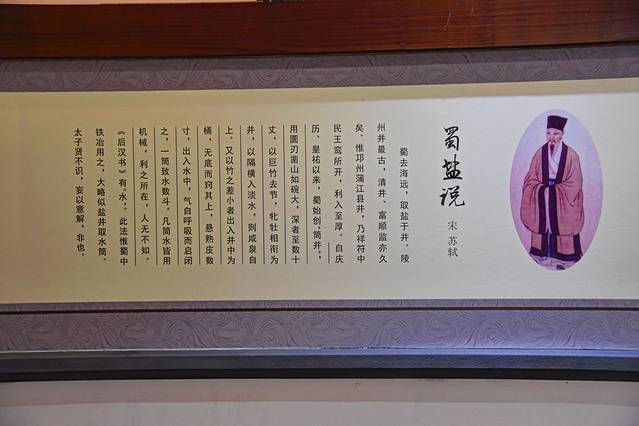 蜀盐说
宋 苏轼
蜀去海远，取盐于井。陵
州井最古，淯井、富顺监亦久
矣。惟邛州蒲江县井，乃祥符中
民王鸾所开，利入至厚。自庆
历、皇祐以来，蜀始创“筒井”，
用圜刃凿山如碗大，深者至数十
丈，以巨竹去节，牝牡相衔为
井，以隔横入淡水，则咸泉自
上。又以竹之差小者出入井中为
桶，无底而窍其上，悬熟皮数
寸，出入水中，气自呼吸而启闭
之，一筒致水数斗。凡筒水皆用
机械，利之所在，人无不知。
《后汉书》有“水”。此法惟蜀中
铁冶用之，大略似盐井取水筒。
太子贤不识，妄以意解，非也。